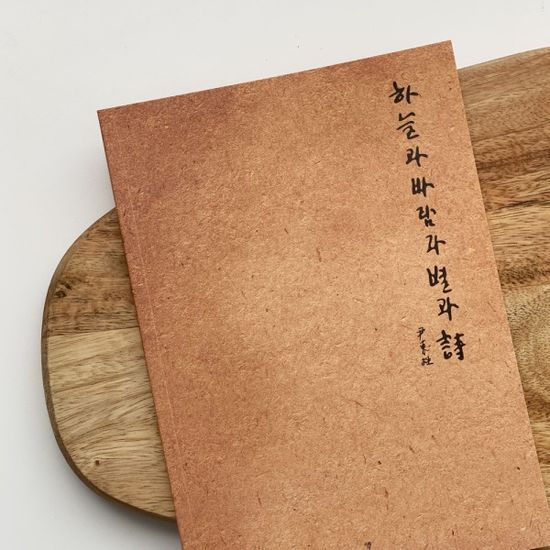 하늘과 바람과 별과 詩
尹東柱